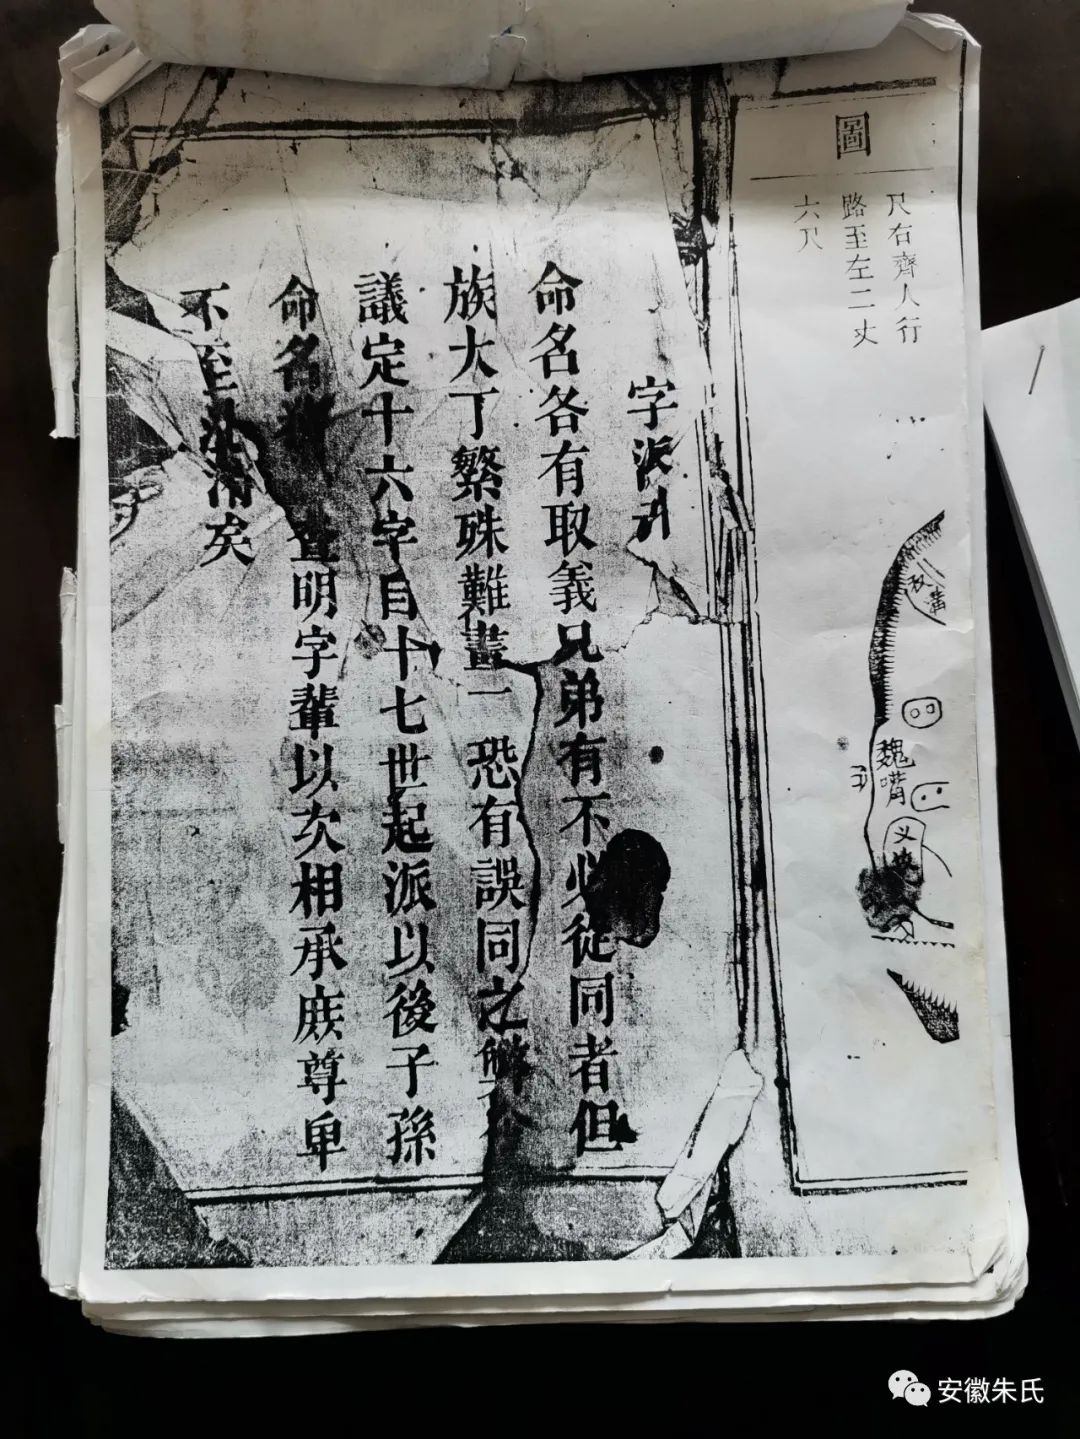 圖
尺右齊人行
路至左二丈
六尺
溝
魏嘴
字派引
命名各有取義兄弟有不必從同者但
族大丁繁殊難畫一恐有誤同之弊今
議定十六字目十七世起派以後子孫
命名 查明字輩以次相承庶尊卑
不至 淆矣
安徽朱氏